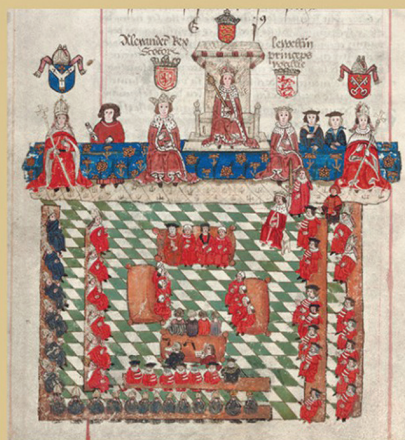 Alexander Rex
Scotor
lewellin
princeps
wallie